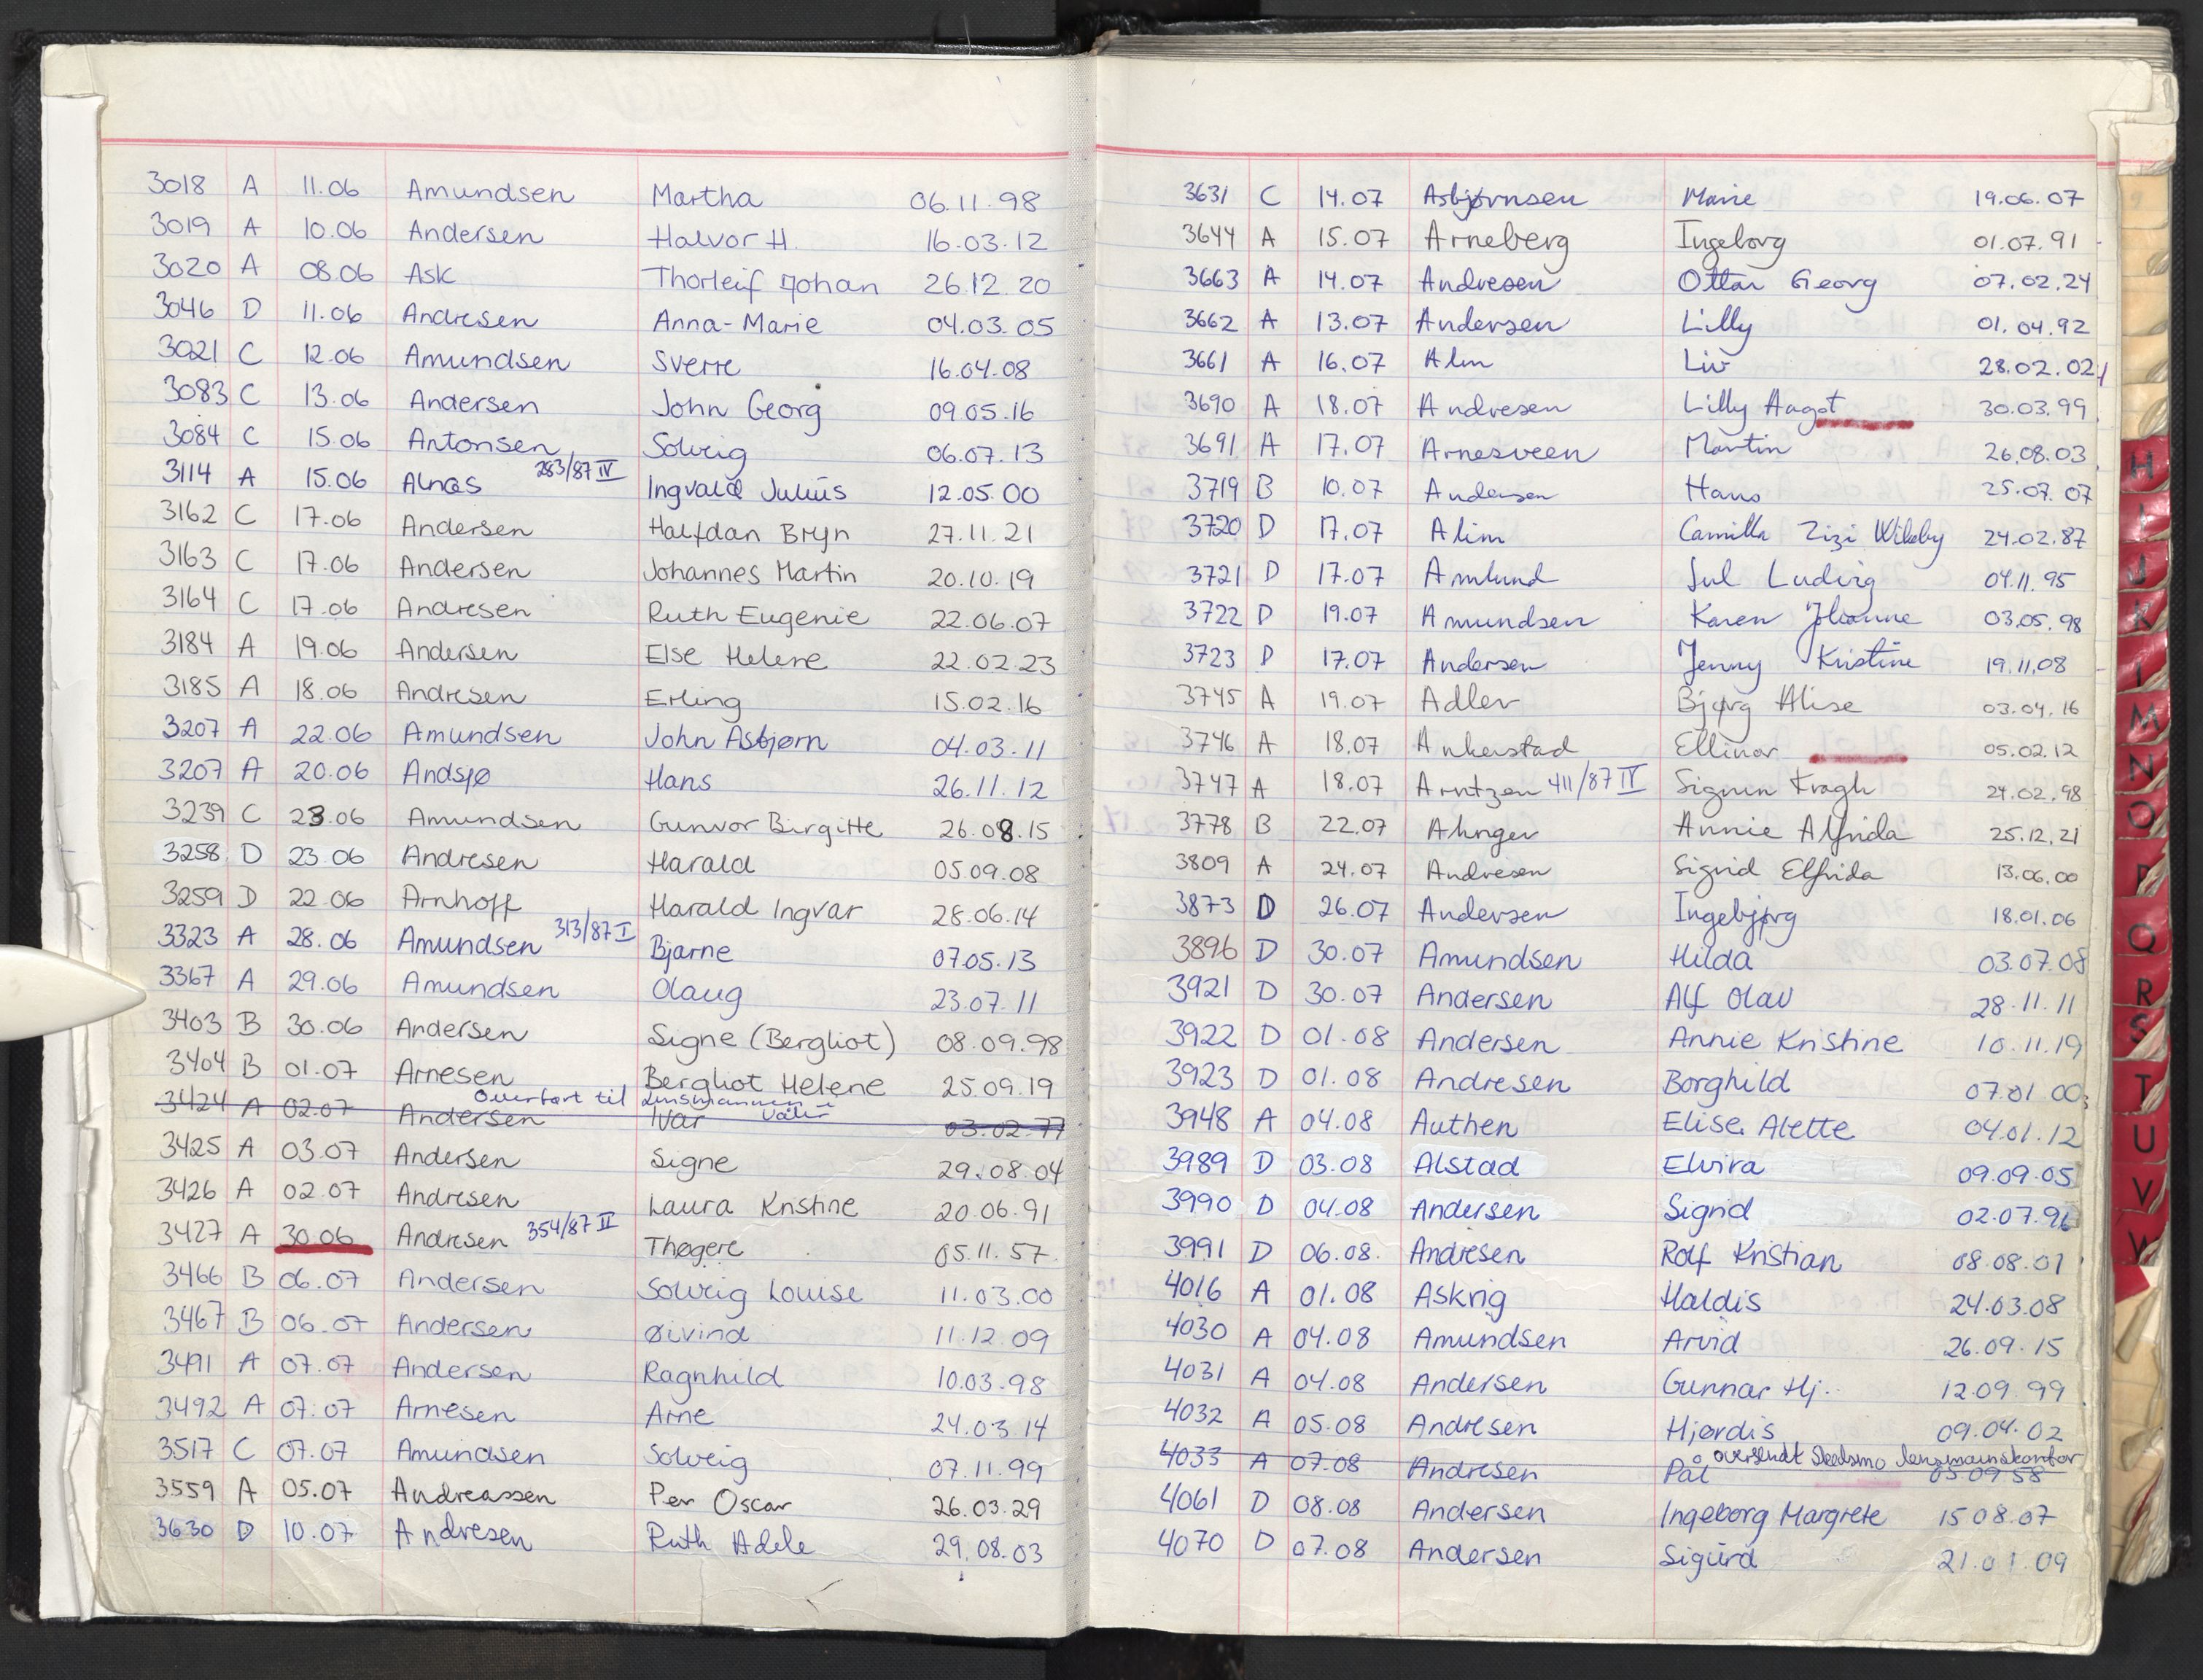 3018 A 11.06 Amundsen Martha 06.11.98
3019 A 10.06 Andersen Halvor H. 16.03.12
3020 A 08.06 Ask Thorleif Johan 26.12.20
3046 D 11.06 Andresen Anna-Marie 04.03.05
3021 C 12.06 Amundsen Sverre 16.04.08
3083 C 13.06 Andersen John Georg 09.05.16
3084 C 15.06 Antonsen Solveig 06.07.13
3114 A 15.06 Alnæs 283/87 IV Ingvald Julius 12.05.00
3162 C 17.06 Andersen Halfdan Bryn 27.11.21
3163 C 17.06 Andersen Johannes Martin 20.10.19
3164 C 17.06 Andresen Ruth Eugenie 22.06.07
3184 A 19.06 Andersen Else Helene 22.02.23
3185 A 18.06 Andresen Erling 15.02.16
3207 A 22.06 Amundsen John Asbjørn 04.03.11
3207 A 20.06 Andsjø Hans 26.11.12
3239 C 23.06 Amundsen Gunvor Birgitte 26.08.15
3258 D 23.06 Andresen Harald 05.09.08
3259 D 22.06 Arnhoff Harald Ingvar 28.06.14
3323 A 28.06 Amundsen 313/87 I Bjarne 07.05.13
3367 A 29.06 Amundsen Olaug 23.07.11
3403 B 30.06 Andersen Signe (Bergliot) 08.09.98
3404 B 01.07 Arnesen Bergliot Helene 25.09.19
Overført til lensmannen i Våler
3424 A 02.07 Andersen Ivar 03.02.77
3425 A 03.07 Andersen Signe 29.08.04
3426 A 02.07 Andresen Laura Kristine 20.06.91
3427 A 30.06 Andresen 354/87 II Thøgere 05.11.57
3466 B 06.07 Andersen Solveig Louise 11.03.00
3467 B 06.07 Andersen Øivind 11.12.09
3491 A 07.07 Andersen Ragnhild 10.03.98
3492 A 07.07 Arnesen Arne 24.03.14
3517 C 07.07 Amundsen Solveig 07.11.99
3559 A 05.07 Andreassen Per Oscar 26.03.29
3630 D 10.07 Andresen Ruth Adele 29.08.03
3631 C 14.07 Asbjørnsen Marie 19.06.07
3644 A 15.07 Arneberg Ingeborg 01.07.91
3663 A 14.07 Andresen Ottar Georg 07.02.24
3662 A 13.07 Andersen Lilly 01.04.92
3661 A 16.07 Alm Liv 28.02.02
3690 A 18.07 Andresen Lilly Aagot 30.03.99
3691 A 17.07 Arnesveen Martin 26.08.03
3719 B 10.07 Andersen Hans 25.07.07
3720 D 17.07 Alim Camilla Zizi Wikeby 24.02.87
3721 D 17.07 Amlund Jul Ludvig 04.11.95
3722 D 19.07 Amundsen Karen Johanne 03.05.98
3723 D 17.07 Andersen Jenny Kristine 19.11.08
3745 A 19.07 Adler Bjørg Alise 03.04.16
3746 A 18.07 Ankerstad Ellinor 05.02.12
3747 A 18.07 Arntzen 411/87 IV Signun Kragh 24.02.98
3778 B 22.07 Ahnger Annie Alfrida 25.12.21
3809 A 24.07 Andresen Sigrid Elfrida 13.06.00
3873 D 26.07 Andersen Ingebjørg 18.01.06
3896 D 30.07 Amundsen Hilda 03.07.08
3921 D 30.07 Andersen Alf Olav 28.11.11
3922 D 01.08 Andersen Annie Kristine 10.11.19
3923 D 01.08 Andresen Borghild 07.01.00
3948 A 04.08 Authen Elise Alette 04.01.12
3989 D 03.08 Alstad Elvira 09.09.05
3990 D 04.08 Andersen Sigrid 02.07.96
3991 D 06.08. Andresen Rolf Kristian 08.08.01
4016 A 01.08 Askrig Haldis 24.03.08
4030 A 04.08 Amundsen Arvid 26.09.15
4031 A 04.08 Andersen Gunnar Hj. 12.09.99
4032 A 05.08 Andresen Hjørdis 09.04.02
oversendt Skedsmo lensmannskontor
4033 A 07.08 Andresen Pål 05.09.58
4061 D 08.08 Andersen Ingeborg Margrete 15.08.07
4070 D 07.08 Andersen Sigurd 21.01.09
H
I
J
K
L
M
N
O
P
Q
R
S
T
U
V
W